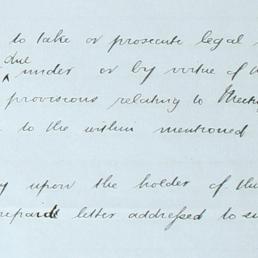 to take or prosecute legal
due
under or by virtue of
provisions relating to
to the within mentioned
upon the holder of
letter addressed to